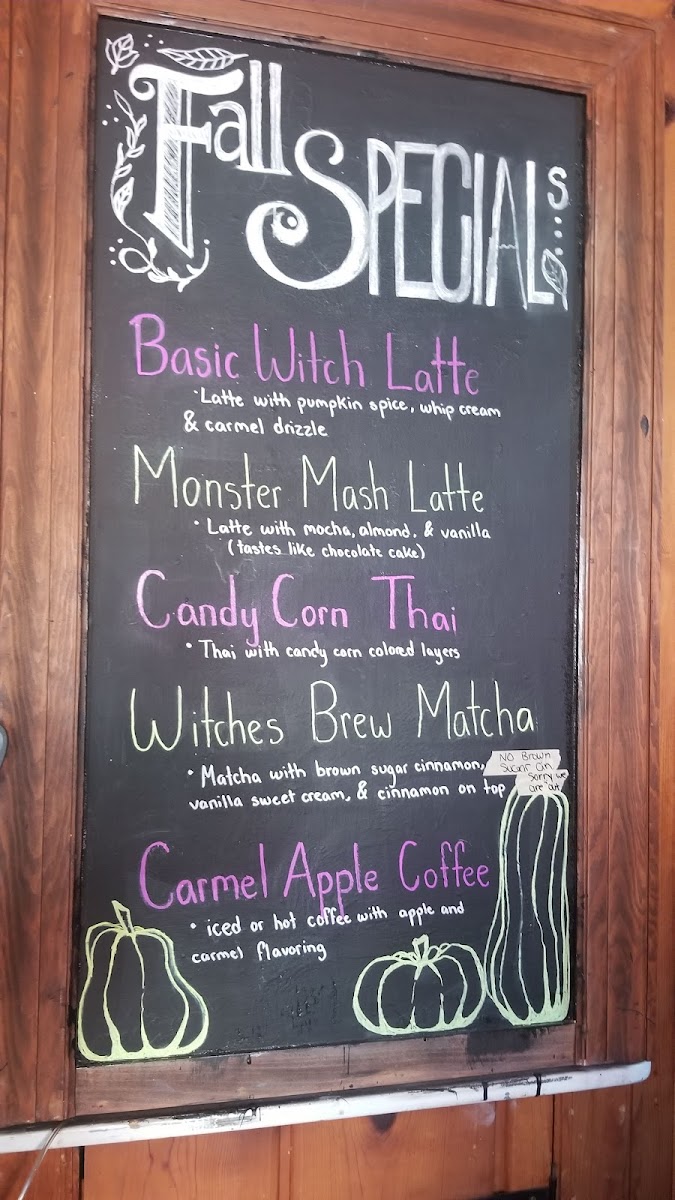 Fall
SPECIALS
Basic Witch Latte
·Latte with pumpkin spice, whip cream
& carmel drizzle
Monster Mash Latte
·Latte with mocha, almond, & vanilla
(tastes like chocolate cake)
Candy Corn Thai
·Thai with candy corn colored layers
Witches Brew Matcha
·Matcha with brown sugar cinnamon,
vanilla sweet cream, & cinnamon on top
NO Brown
Sugar Cin.
Sorry we
are out
Carmel Apple Coffee
·iced or hot coffee with apple and
carmel flavoring